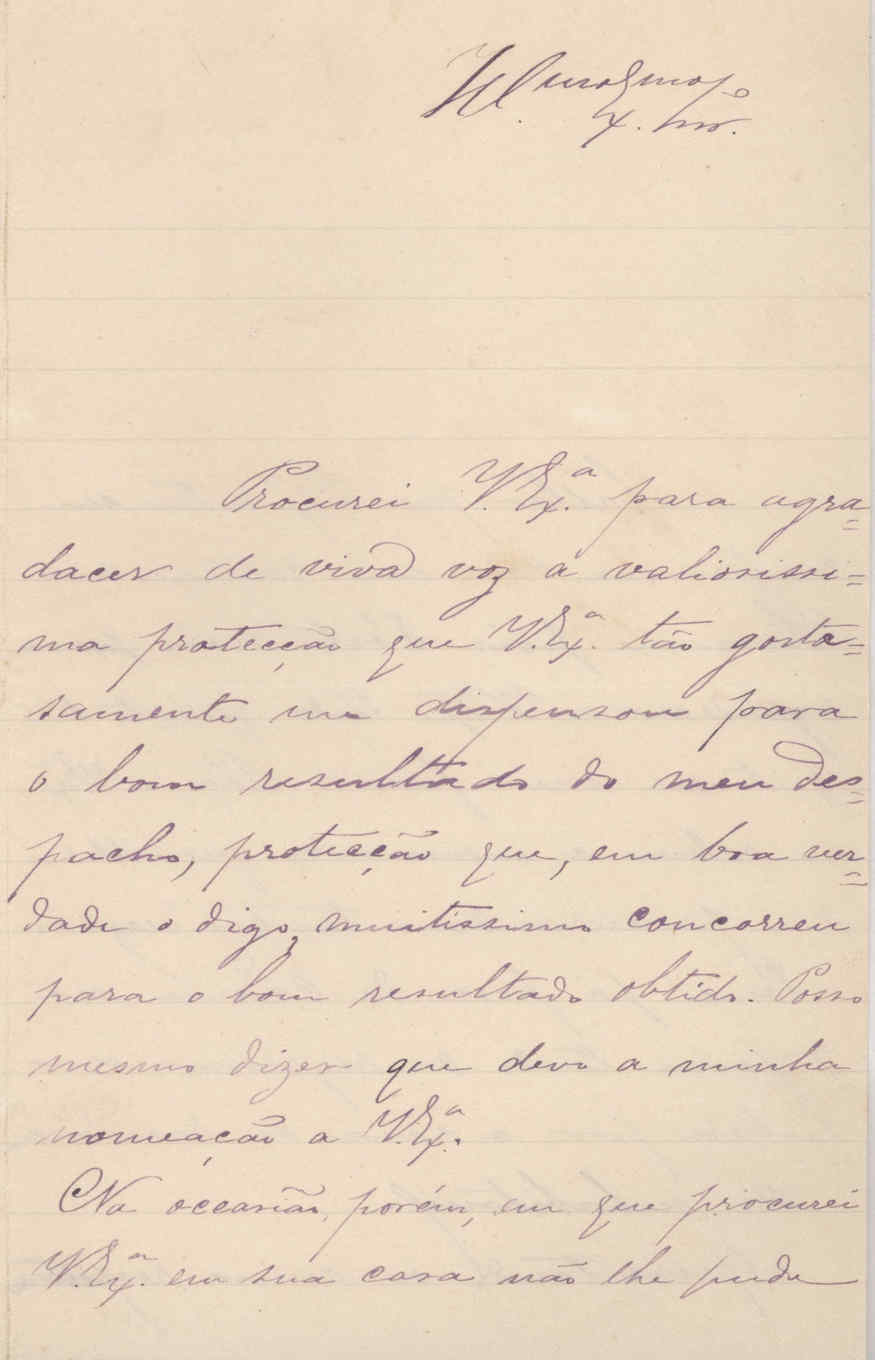 Illmo Exmo
Procurei V. Ex.ª para agra=
dacer de viva voz a valiosissi=
ma protecção que V. Ex.ª tão gosta=
samente me dispensou para
o bom resultado do meu des=
pacho, protecção que, em boa ver=
dade o digo, muitissimo concorreu
para o bom resultado obtido. Posso
mesmo dizer que devo a minha
nomeação a V. Ex.ª.
Na occasião, porém, em que procurei
V. Ex.ª em sua casa não lhe pude